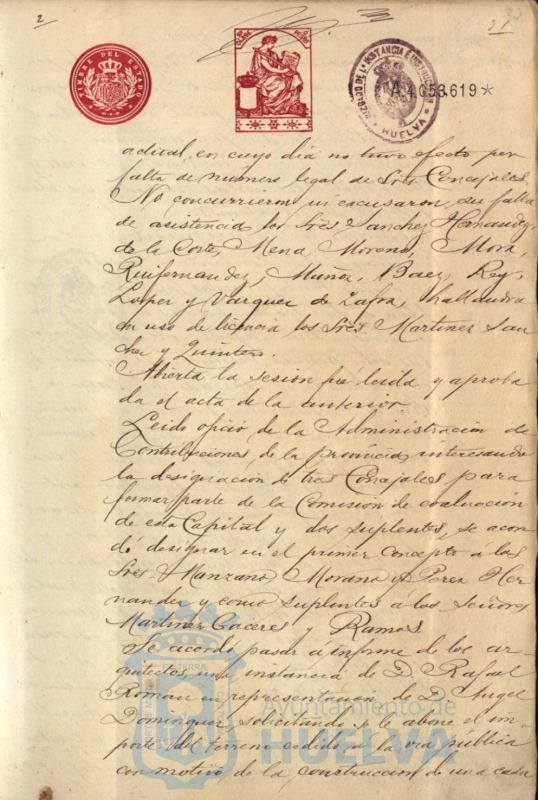 2
21
TIMBRE DEL ESTADO
JUZGADO DE 1ª INSTANCIA E INSTRUCCION
HUELVA
A.4.053.619*
actual, en cuyo dia no tuvo efecto por
falta de numero legal de Sres Concejales.
No concurrieron ni escusaron su falta
de asistencia los Sres Sanchez Hernandez,
de la Corte, Mena, Moreno, Mora,
Ruifernandez, Muñoz, Baez, Rey,
Lopez y Vazquez de Zafra, hallandose
en uso de licencia los Sres Martinez San
chez y Quintero.
Abierta la sesion fue leida y aproba
da el acta de la anterior.
Leido oficio de la Administracion de
Contribuciones de la provincia, interesando
la designacion de tres Concejales para
formar parte de la Comision de evaluacion
de esta Capital y dos suplentes, se acor
dó designar en el primer concepto á los
Sres Manzano, Morano y Perez Her
nandez y como suplentes á los Señores
Martinez Caceres y Ramos.
Se acordó pasar á informe de los ar
quitectos una instancia de D. Rafael
Roman en representacion de D. Angel
Dominguez solicitando se le abone el im
porte del terreno cedido á la via publica
con motivo de la construccion de una casa
Ayuntamiento de
HUELVA